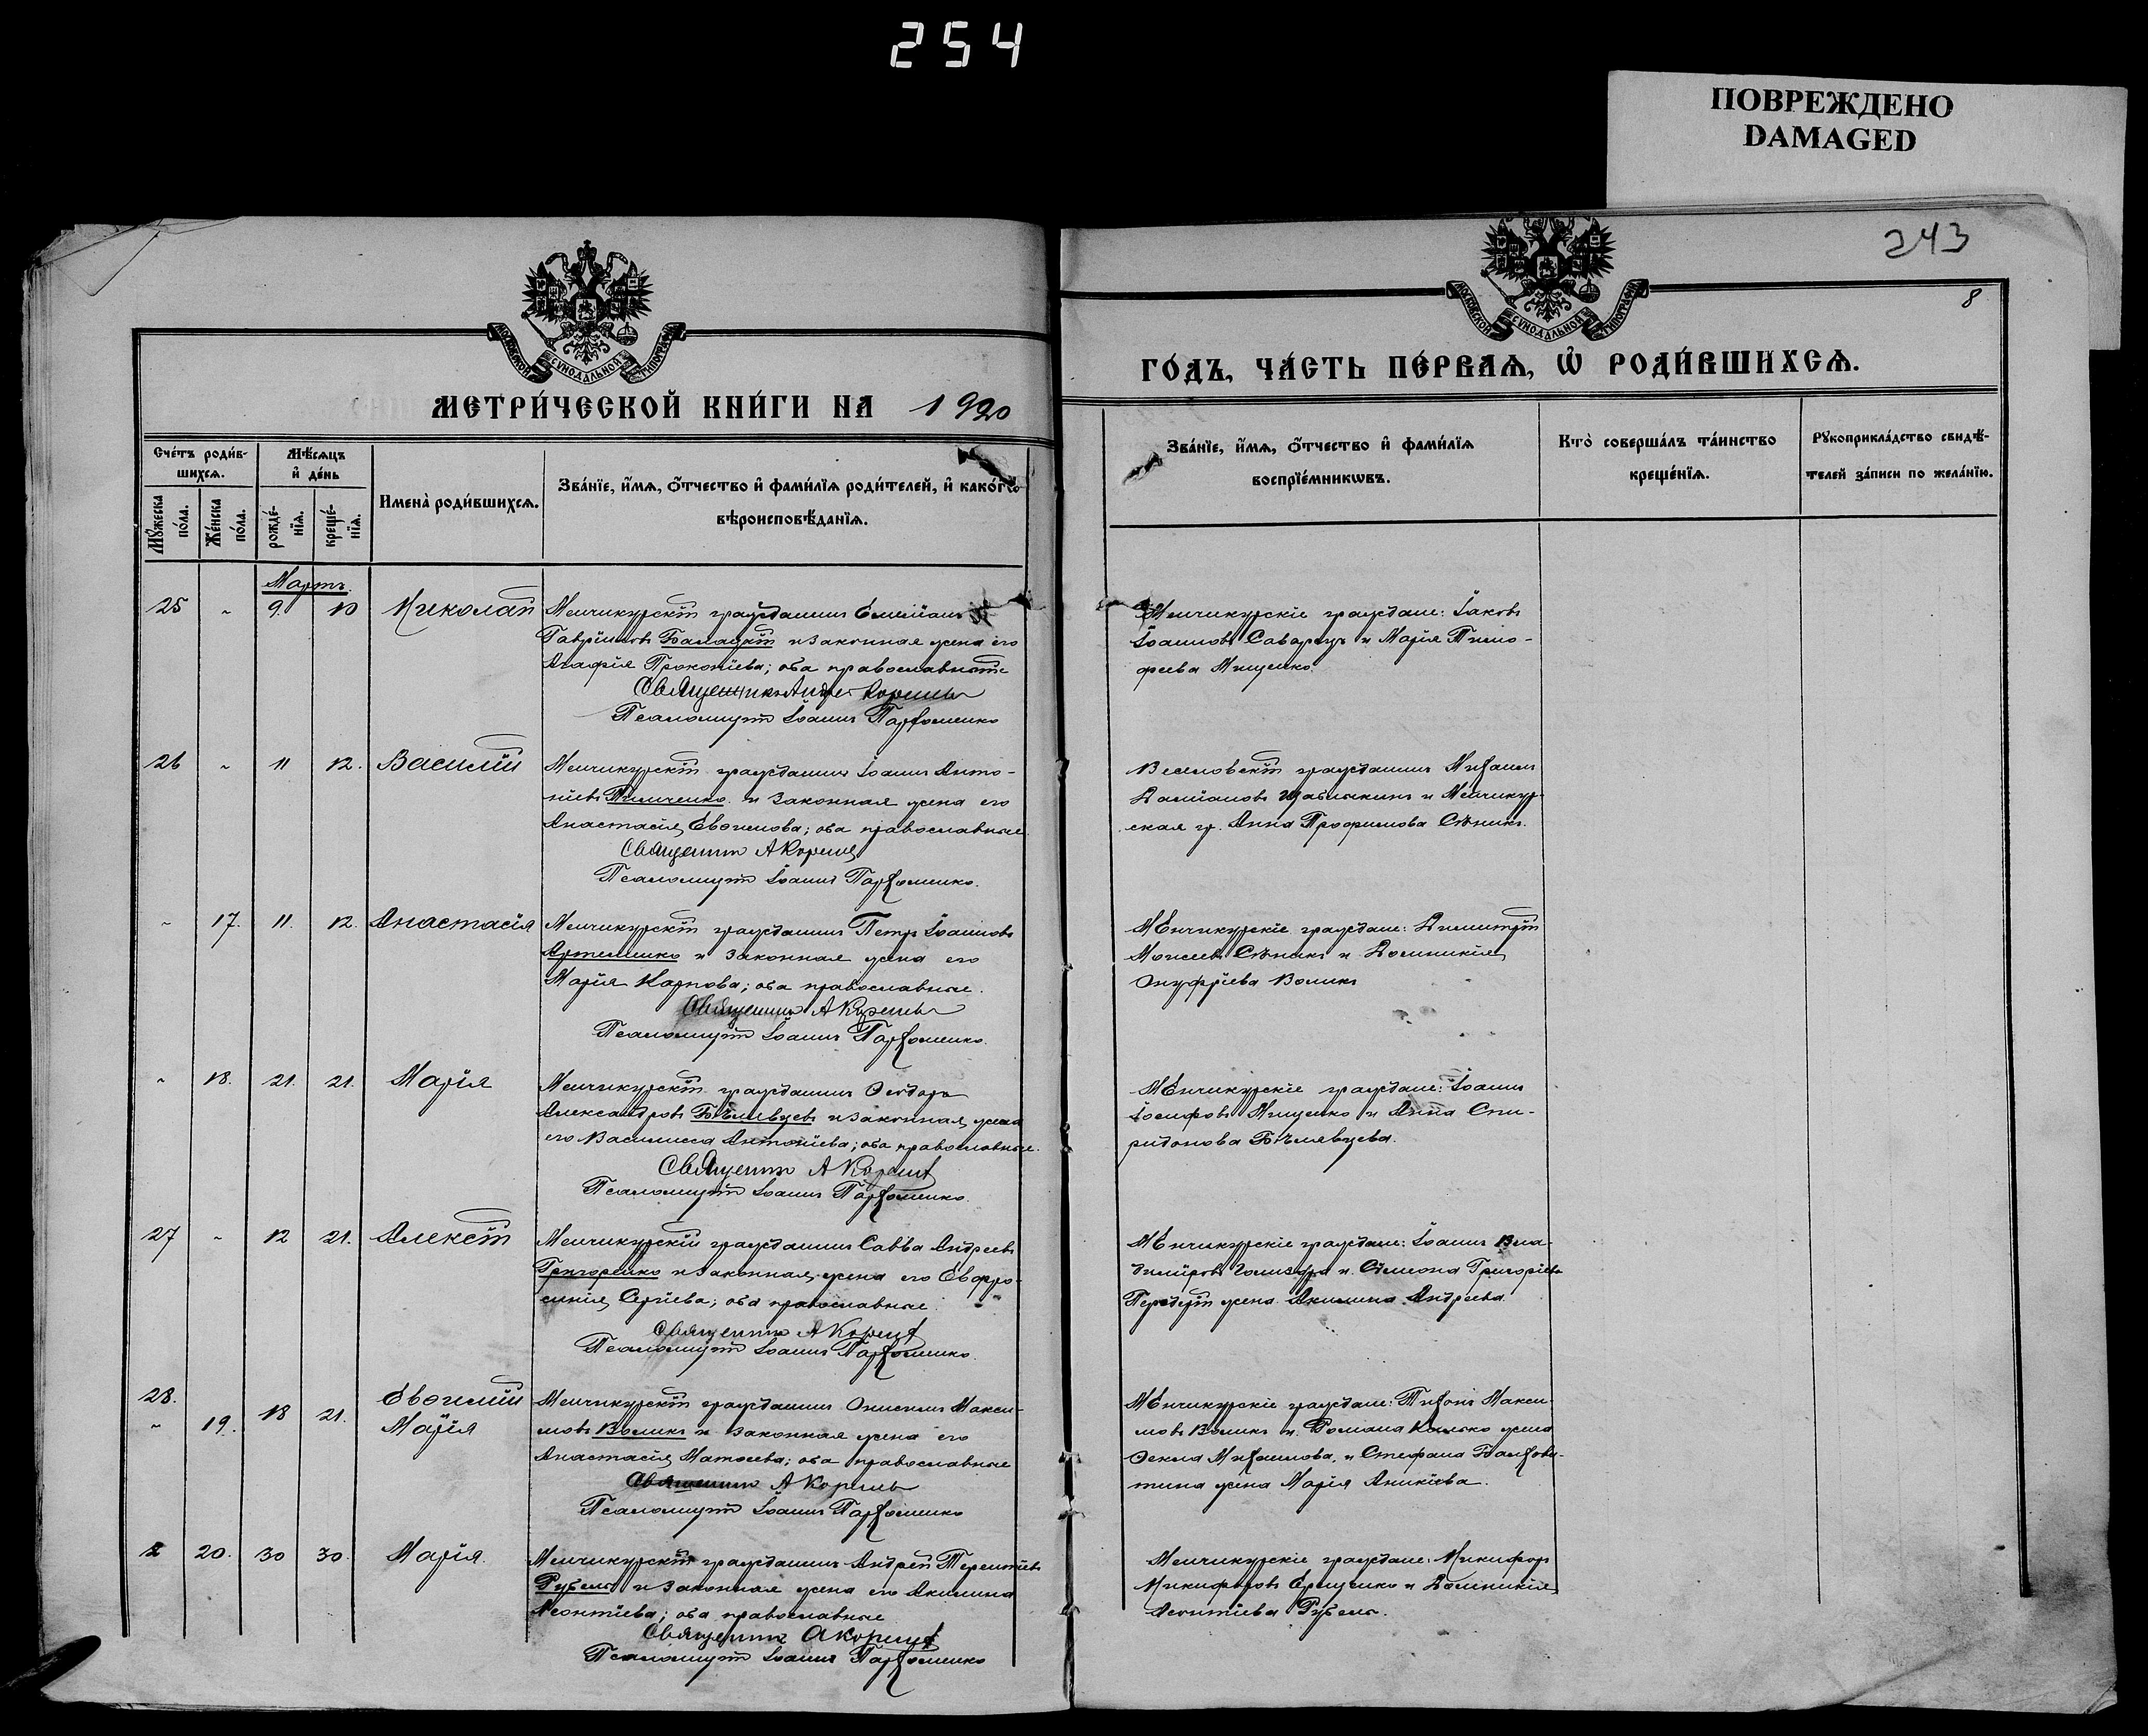 254
ПОВРЕЖДЕНО
DAMAGED
243
8
МОСКОВСКОЙ СѴНОДАЛЬНОЙ ТИПОГРАФІИ
МОСКОВСКОЙ СѴНОДАЛЬНОЙ ТИПОГРАФІИ
МЕТРИ́ЧЕСКОЙ КНИ́ГИ НА 1920
ГО́ДЪ, ЧА́СТЬ ПЕ́РВАѦ, Ѡ҆ РОДИ́ВШИХСѦ.
Сче́тъ роди́в-
шихсѧ.
Мꙋ́жеска по́ла.
Же́нска по́ла.
Мѣ́сѧцъ и҆ де́нь
рожде́-нїѧ.
креще́-нїѧ.
Имена̀ роди́вшихсѧ.
Зва́нїе, и҆́мѧ, ѻ҆́тчество и҆ фами́лїѧ роди́телей, и҆ како́гѡ
вѣроисповѣ́данїѧ.
Зва́нїе, и҆́мѧ, ѻ҆́тчество и҆ фами́лїѧ
воспрїе́мникѡвъ.
Кто̀ соверша́лъ та́инство
креще́нїѧ.
Рꙋкоприкла́дство свидѣ́-
телей за́писи по жела́нїю.
Мартъ.
25 " 9. 10 Николай
Менчикурскій гражданинъ Емеліанъ
Гавріиловъ Балацкій и законная жена его
Агафія Прокопіева; оба православные
Священникъ Андрей Корень
Псаломщикъ Іоаннъ Пархоменко
Менчикурскіе граждане: Іаковъ
Іоанновъ Саварецъ и Марія Тимо-
феева Мищенко.
26 " 11 12. Василій
Менчикурскій гражданинъ Іоаннъ Анто-
ніевъ Тимченко и законная жена его
Анастасія Евѳимова; оба православные
Священник А Корень
Псаломщикъ Іоаннъ Пархоменко.
Веселовскій гражданинъ Михаилъ
Даміановъ Щаблыкинъ и Менчикур-
ская гр. Анна Трофимова Сѣникъ.
" 17. 11. 12. Анастасія
Менчикурскій гражданинъ Петръ Іоанновъ
Артеменко и законная жена его
Марія Карпова; оба православные.
Священник А Корень
Псаломщикъ Іоаннъ Пархоменко.
Менчикурскіе граждане: Димитрій
Моисеевъ Сѣникъ и Домникія
Онуфріева Воликъ
" 18. 21. 21. Марія
Менчикурскій гражданинъ Ѳеодоръ
Александровъ Бѣлявцевъ и законная жена
его Василисса Антоніева; оба православные.
Священник А Корень
Псаломщикъ Іоаннъ Пархоменко.
Менчикурскіе граждане: Іоаннъ
Іосифовъ Мищенко и Анна Спи-
ридонова Бѣлявцева.
27 " 12 21. Алексій
Менчикурскій гражданинъ Савва Андреевъ
Григоренко и законная жена его Евфро-
синія Сергіева; оба православные.
Священник А Корень
Псаломщикъ Іоаннъ Пархоменко.
Менчикурскіе граждане: Іоаннъ Вла-
диміровъ и Симеона Григоріева
жена Акилина Андреева.
28. Евѳимій
" 19. 18 21. Марія
Менчикурскій гражданинъ Онисимъ Макси-
мовъ Воликъ и законная жена его
Анастасія Матѳеева; оба православные
Священник А Корень
Псаломщикъ Іоаннъ Пархоменко
Менчикурскіе граждане: Тихонъ Макси-
мовъ Воликъ и Романа жена
Ѳекла Михаилова, и Стефана
жена Марія Аникіева.
20. 30 30. Марія.
Менчикурскій гражданинъ Андрей Терентіевъ
Рубель и законная жена его Акилина
Леонтіева; оба православные
Священник А Корень
Псаломщикъ Іоаннъ Пархоменко
Менчикурскіе граждане: Никифоръ
Никифоровъ Ерещенко и Домникія
Леонтіева Рубель.